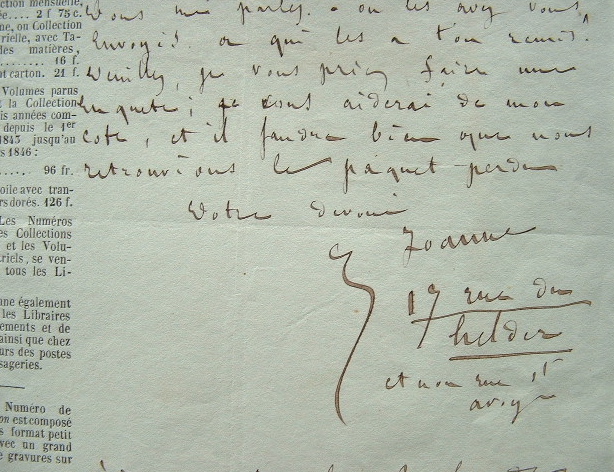 ction mensuelle,
ée.... 2 f 75 c.
ne, ou Collection
rielle, avec Ta-
des matières,
........ 16 f.
at carton. 21 f.
Volumes parus
t la Collection
is années com-
depuis le 1er
1843 jusqu'au
s 1846:
..... 96 fr.
oile avec tran-
rs dorés. 126 f.
Les Numéros
es Collections
et les Volu-
triels, se ven-
tous les Li-
nne également
les Libraires
ements et de
ainsi que chez
urs des postes
sageries.
Numéro de
on est composé
s format petit
vec un grand
e gravures sur
vous me parlez. où les avez vous
Envoyés ou qui les a t'on remis.
Veuillez, je vous prie, faire une
enquete; je vous aiderai de mon
cote, et il faudra bien que nous
retrouvions le paquet perdu
Votre devoué
Joanne
19 rue du
helder
et non rue St
avoye